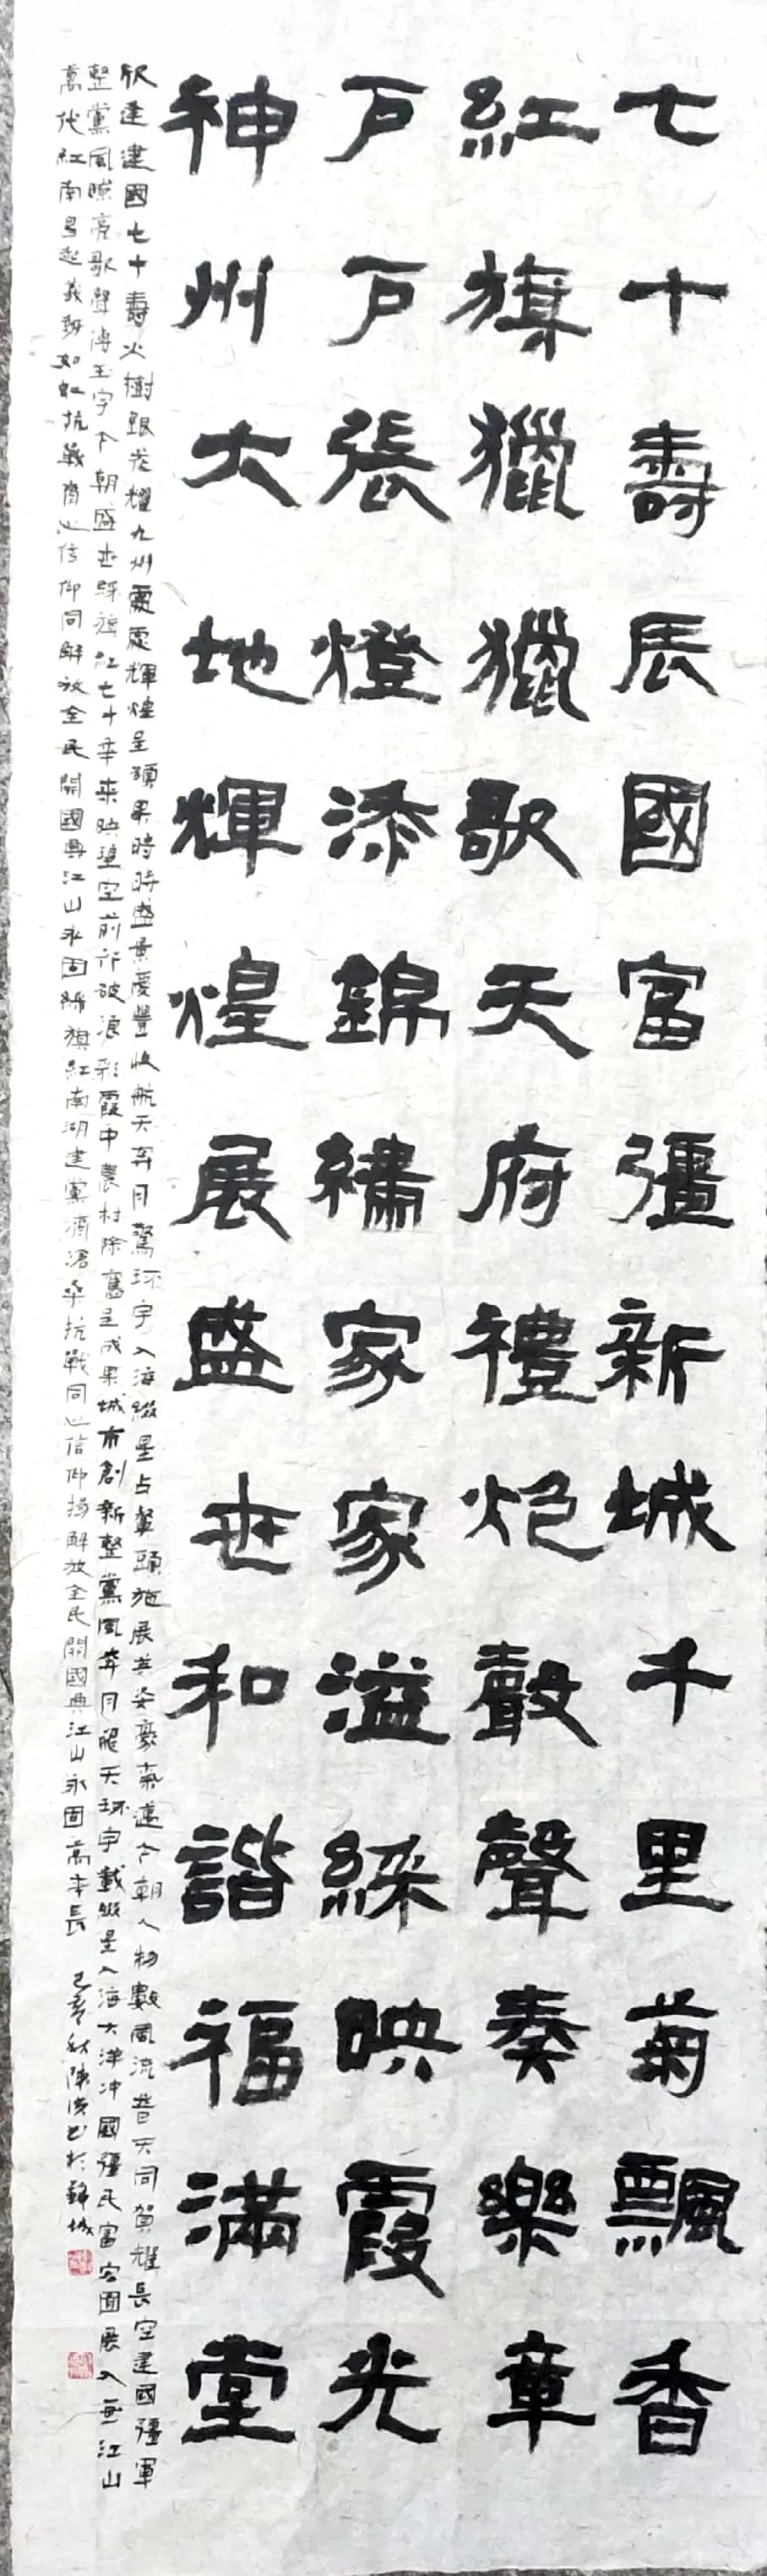 七十壽辰國富彊新城千里菊飄香
紅旗獵獵歌天府禮炮聲聲奏樂章
戶戶張燈添錦繡家家溢綵映霞光
神州大地輝煌展盛世和諧福滿堂
欣逢建國七十壽火樹銀花耀九州處處輝煌呈碩果時時盛景慶豐收航天奔月驚環宇入海綴星占鰲頭施展英姿豪氣邁今朝人物數風流普天同賀耀長空建國彊軍
整黨風嘹亮歌聲傳玉宇今朝盛世舞旗紅七十年來映碧空前行破浪彩霞中農村除舊呈成果城市創新整黨風奔月飛天環宇載綴星入海大洋冲國彊民富宏圖展入畫江山
萬代紅南昌起義勢如虹抗戰齊心信仰同解放全民開國典江山永固綵旗紅南湖建黨濟滄桑抗戰同心信仰揚解放全民開國典江山永固萬年長 己亥秋陳 書於錦城